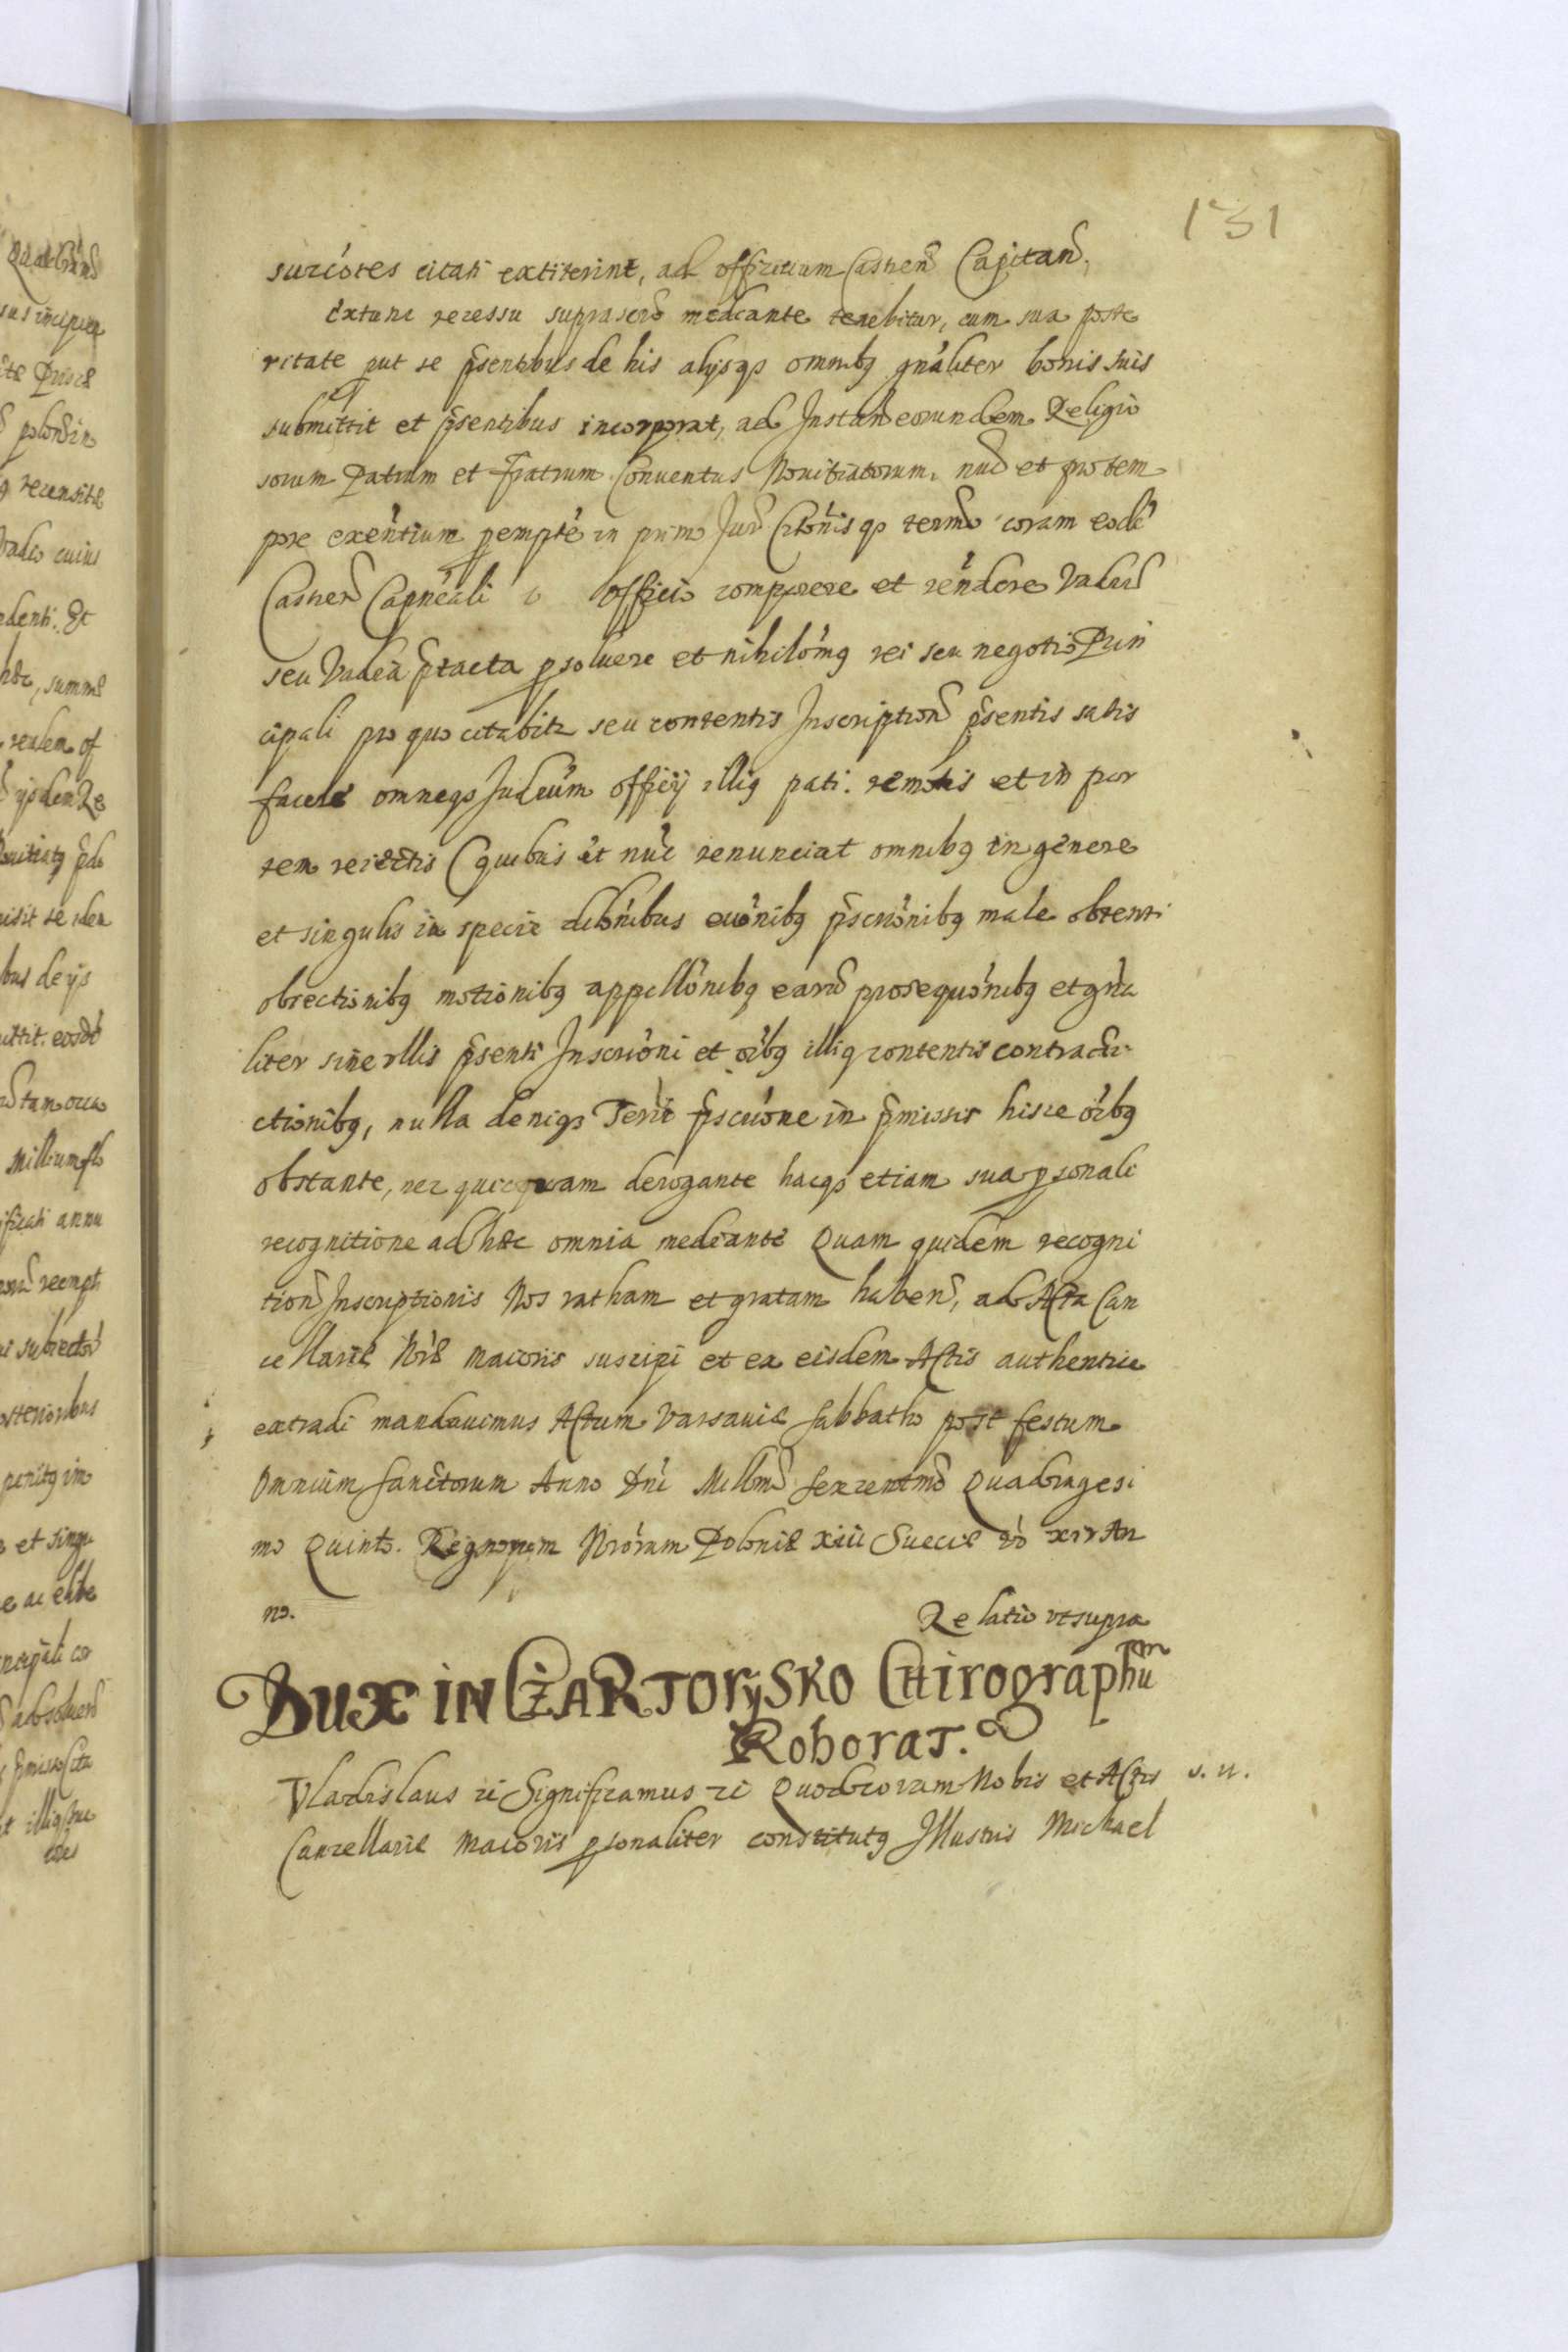 131
surcóres citati extiterint, ad offícium Castren Capitan,
Extunc recessu suprascro mediante tenebitur, cum sua poste
ritate put se psentibus de his alijsqs omnibq gnáliter bonis suis
submittit et psentibus incorporat, ad Instan eorundem Religio
sorum Patrum et Fratrum Conventus Novitiatorum, nuc et pro tem
pore exentium pempté in primo Jur Citónisqs termo coram eodé
Castren Capneáli officio comparere et réndere Vadiu
seu Vadia ptacta psoluere et nihilómq rei seu negotio Prin
cipali pro quo citabitr seu contentis Inscription psentis satis
facere omneqs Judcium officij illiq pati. remotis et in par
tem reiectis (quibus et nuc renunciat omnibq in genere
et singulis in specie dilónibus evónibq pscriónibq male obtenti
obiectionibq motionibq appellónibq earu prosequónibq et gña
liter sine illis psenti Inscrióni et oíbq illiq contentis contradi
ctionibq, nulla deniqs Terre pscrióne in pmissis hisce oíbq
obstante, nec quicquam derogante hacqs etiam sua psonali
recognitione ad hæc omnia mediante Quam quidem recogni
tion Inscriptionis Nos ratham et gratam haben, ad Acta Can
cellariæ Nræ maioris suscipi et ex eisdem Actis authentice
extradi mandavimus Actum Varsaviæ Sabbatho post festum
Omnium Sanctorum Anno Dní Millmo Sexcentmo Quadragesi
mo Quinto. Regnorum Nrórum Poloniæ xiii Sueciæ vò xiv An
no.
Relatio ut supra
DUX IN CżARTORySKO CHirographūm
RoboraT.
Vladislaus ii Significamus ii Quod coram Nobis et Actis v. u.
Cancellariæ Maioris psonaliter constitutq Illustris Michael